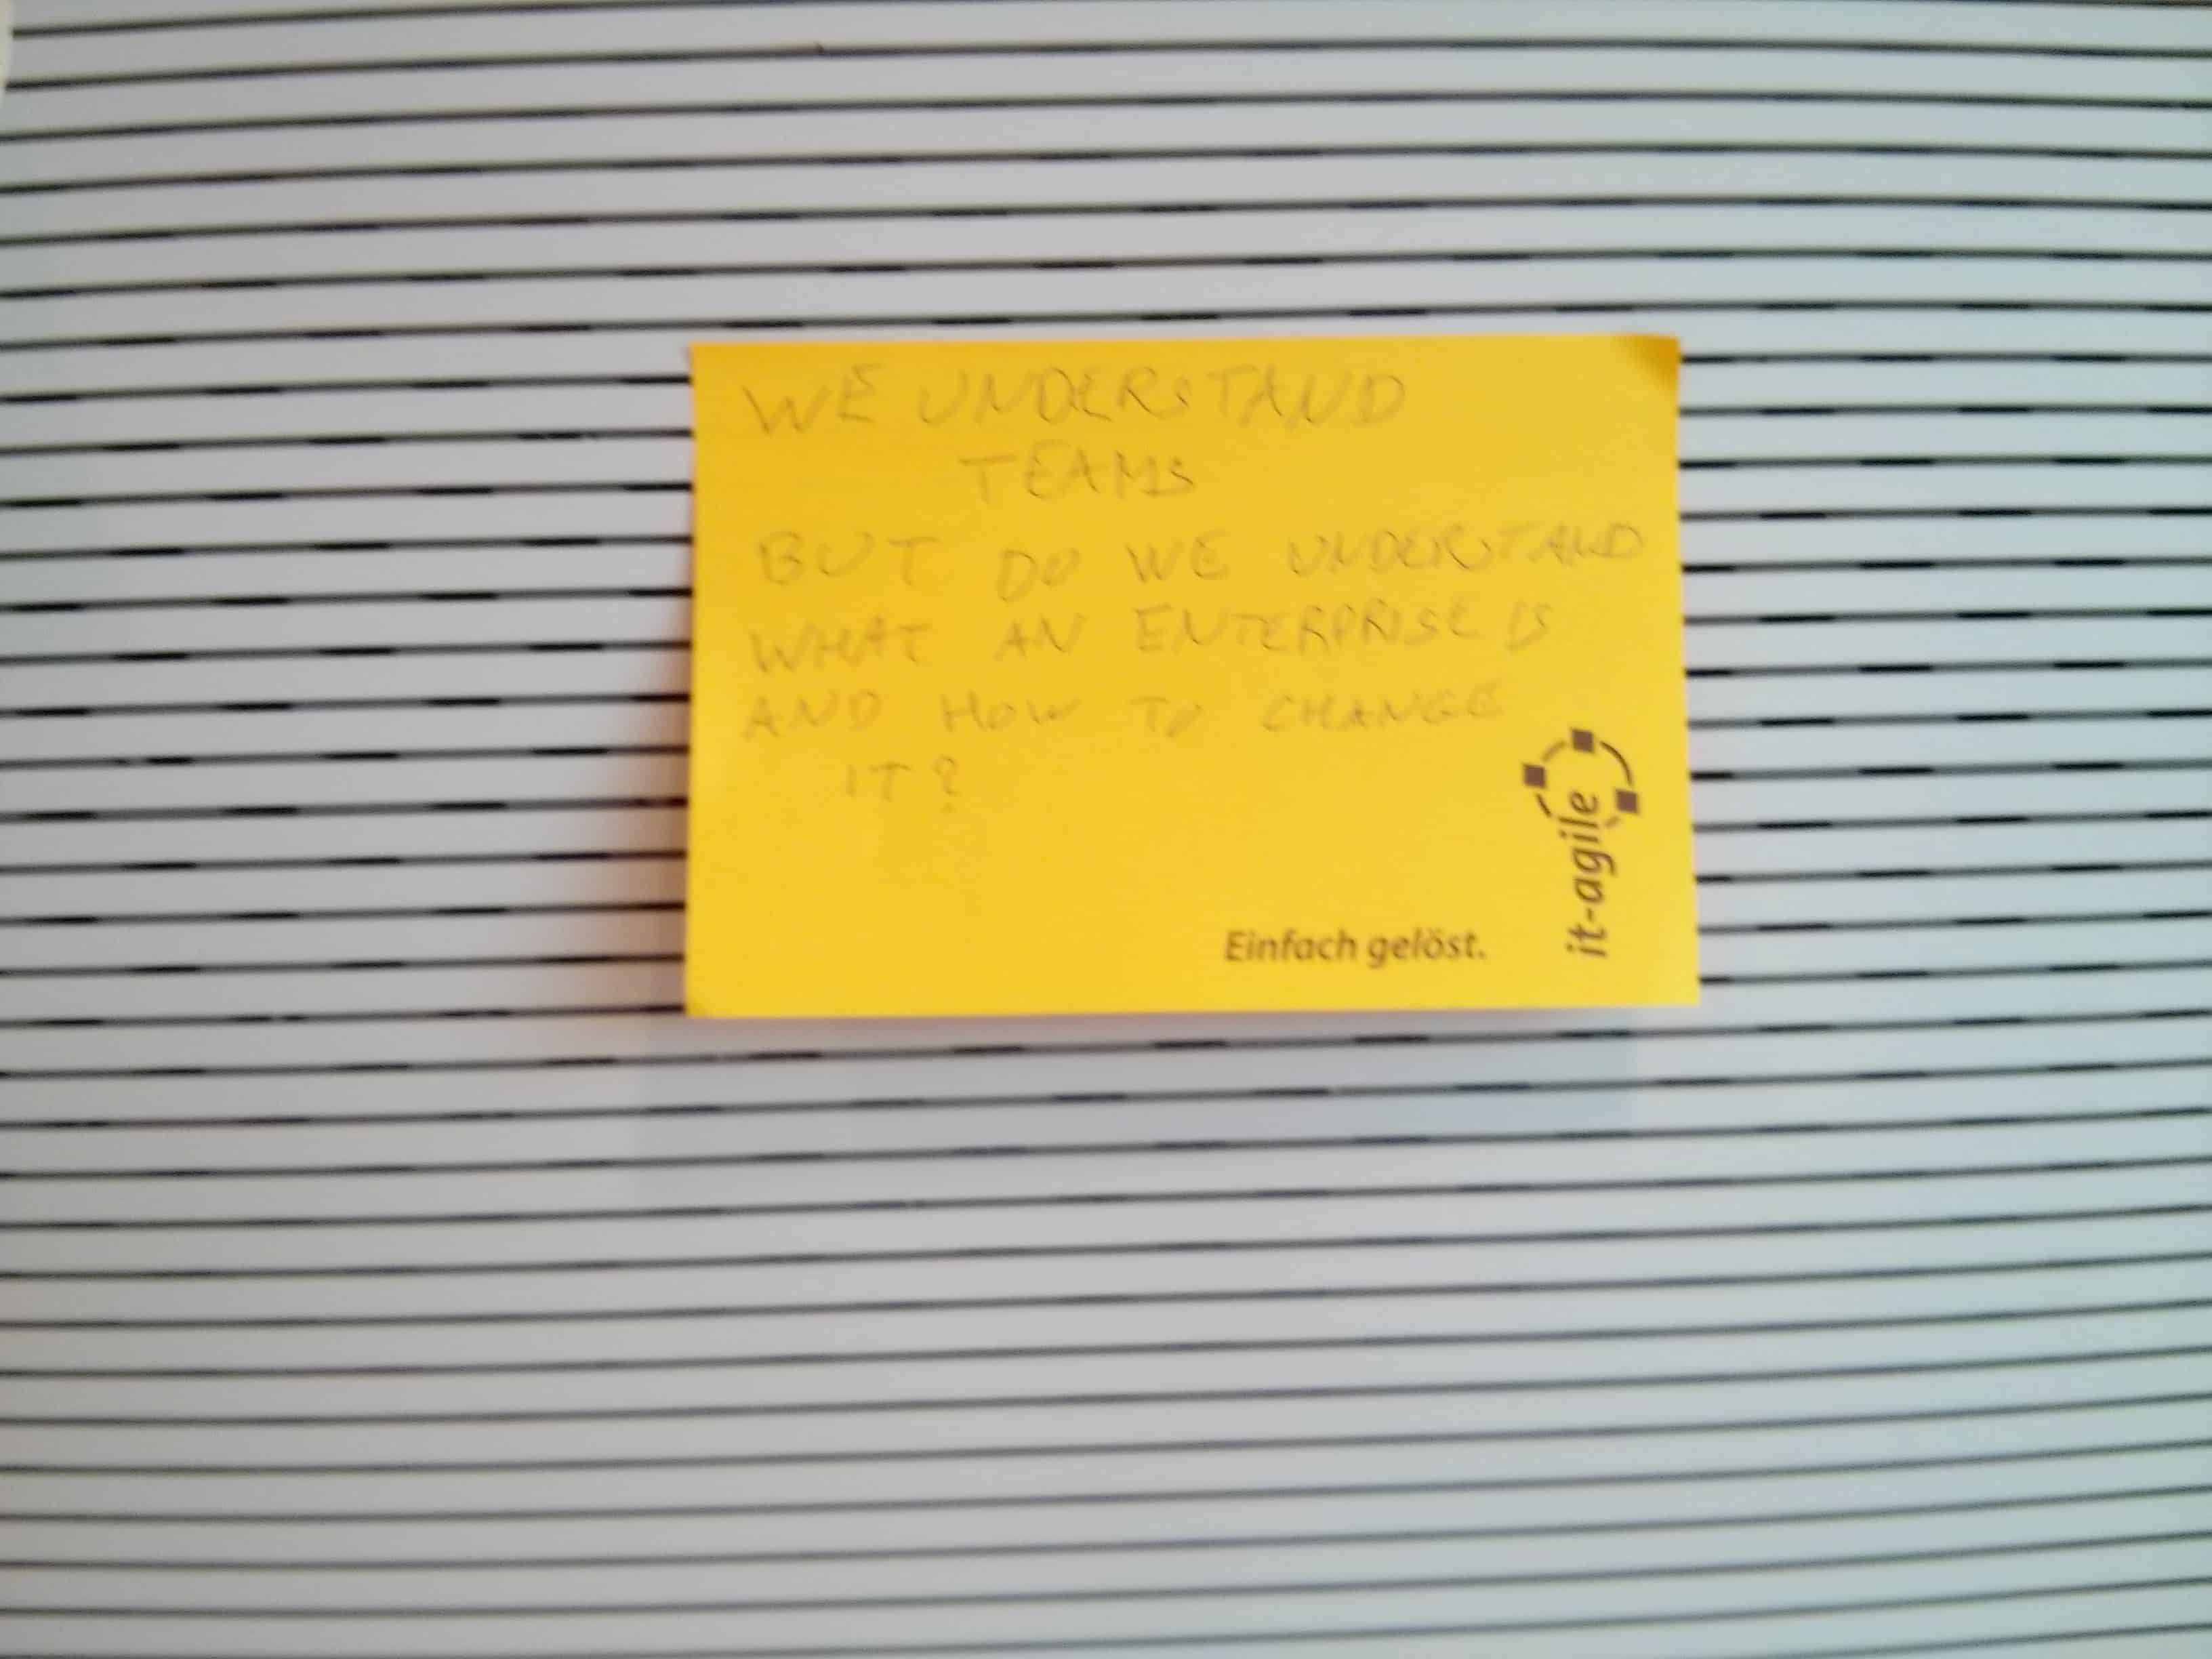 WE UNDERSTAND
TEAMS
BUT DO WE UNDERSTAND
WHAT AN ENTERPRISE IS
AND HOW TO CHANGE
IT?
it-agile
Einfach gelöst.